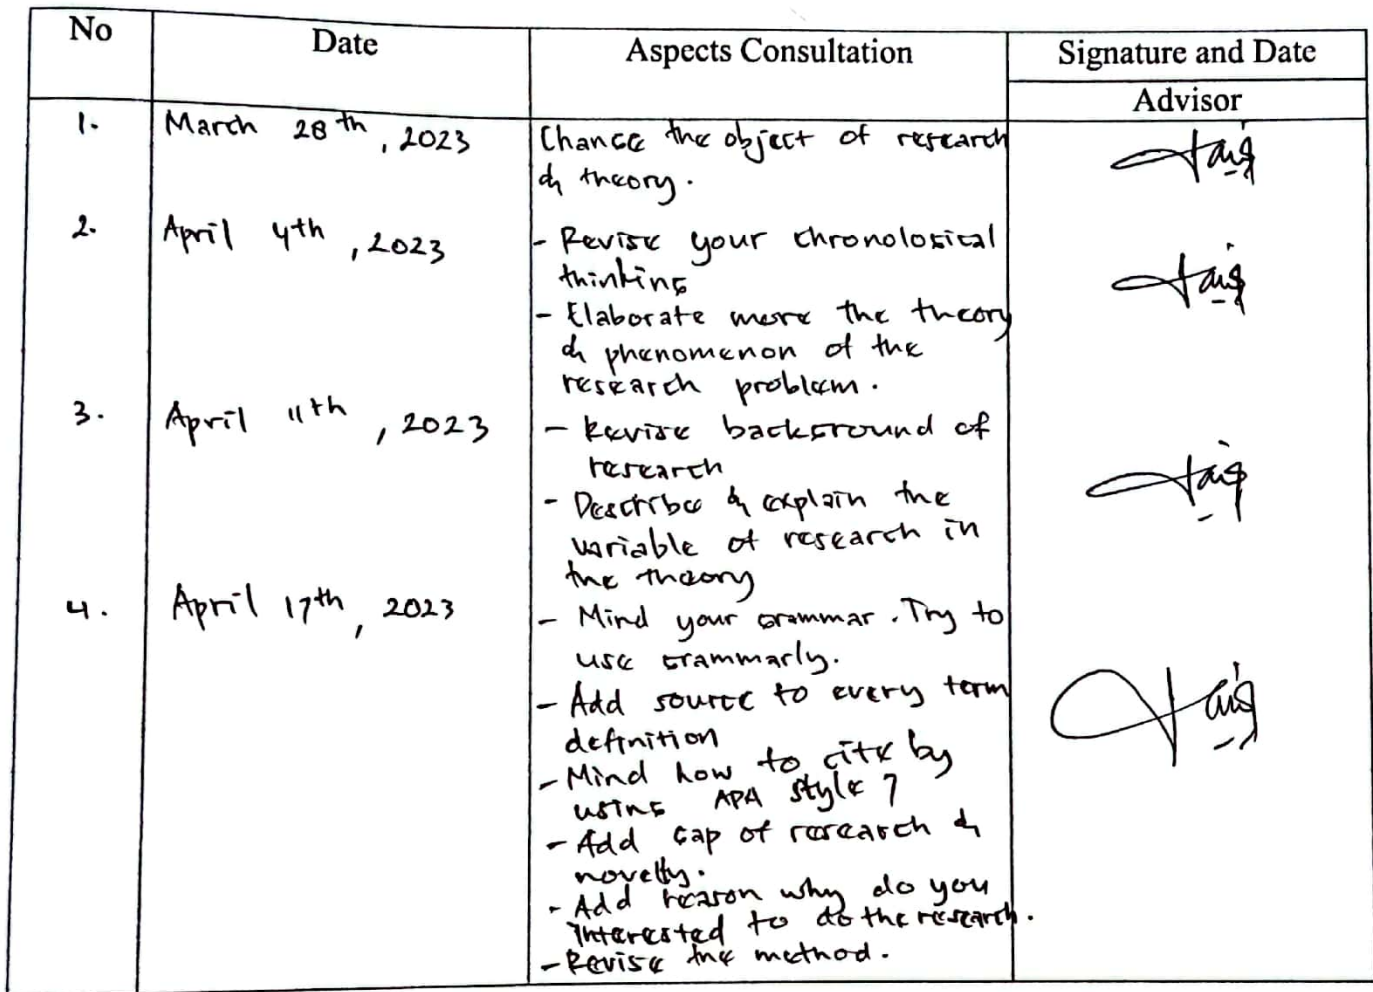 No Date Aspects Consultation Signature and Date
Advisor
1. March 28th, 2023 Change the object of research
& theory.
2. April 4th, 2023 - Revise your chronological
thinking
- Elaborate more the theory
& phenomenon of the
research problem.
3. April 11th, 2023 - Revise background of
research
- Describe & explain the
variable of research in
the theory
4. April 17th, 2023 - Mind your grammar. Try to
use grammarly.
- Add source to every term
definition
- Mind how to cite by
using APA style 7
- Add gap of research &
novelty.
- Add reason why do you
interested to do the research.
- Revise the method.